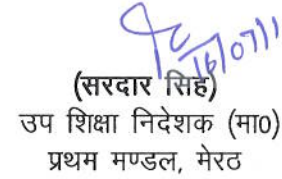 16/07/11
(सरदार सिंह)
उप शिक्षा निदेशक (मा0)
प्रथम मण्डल, मेरठ